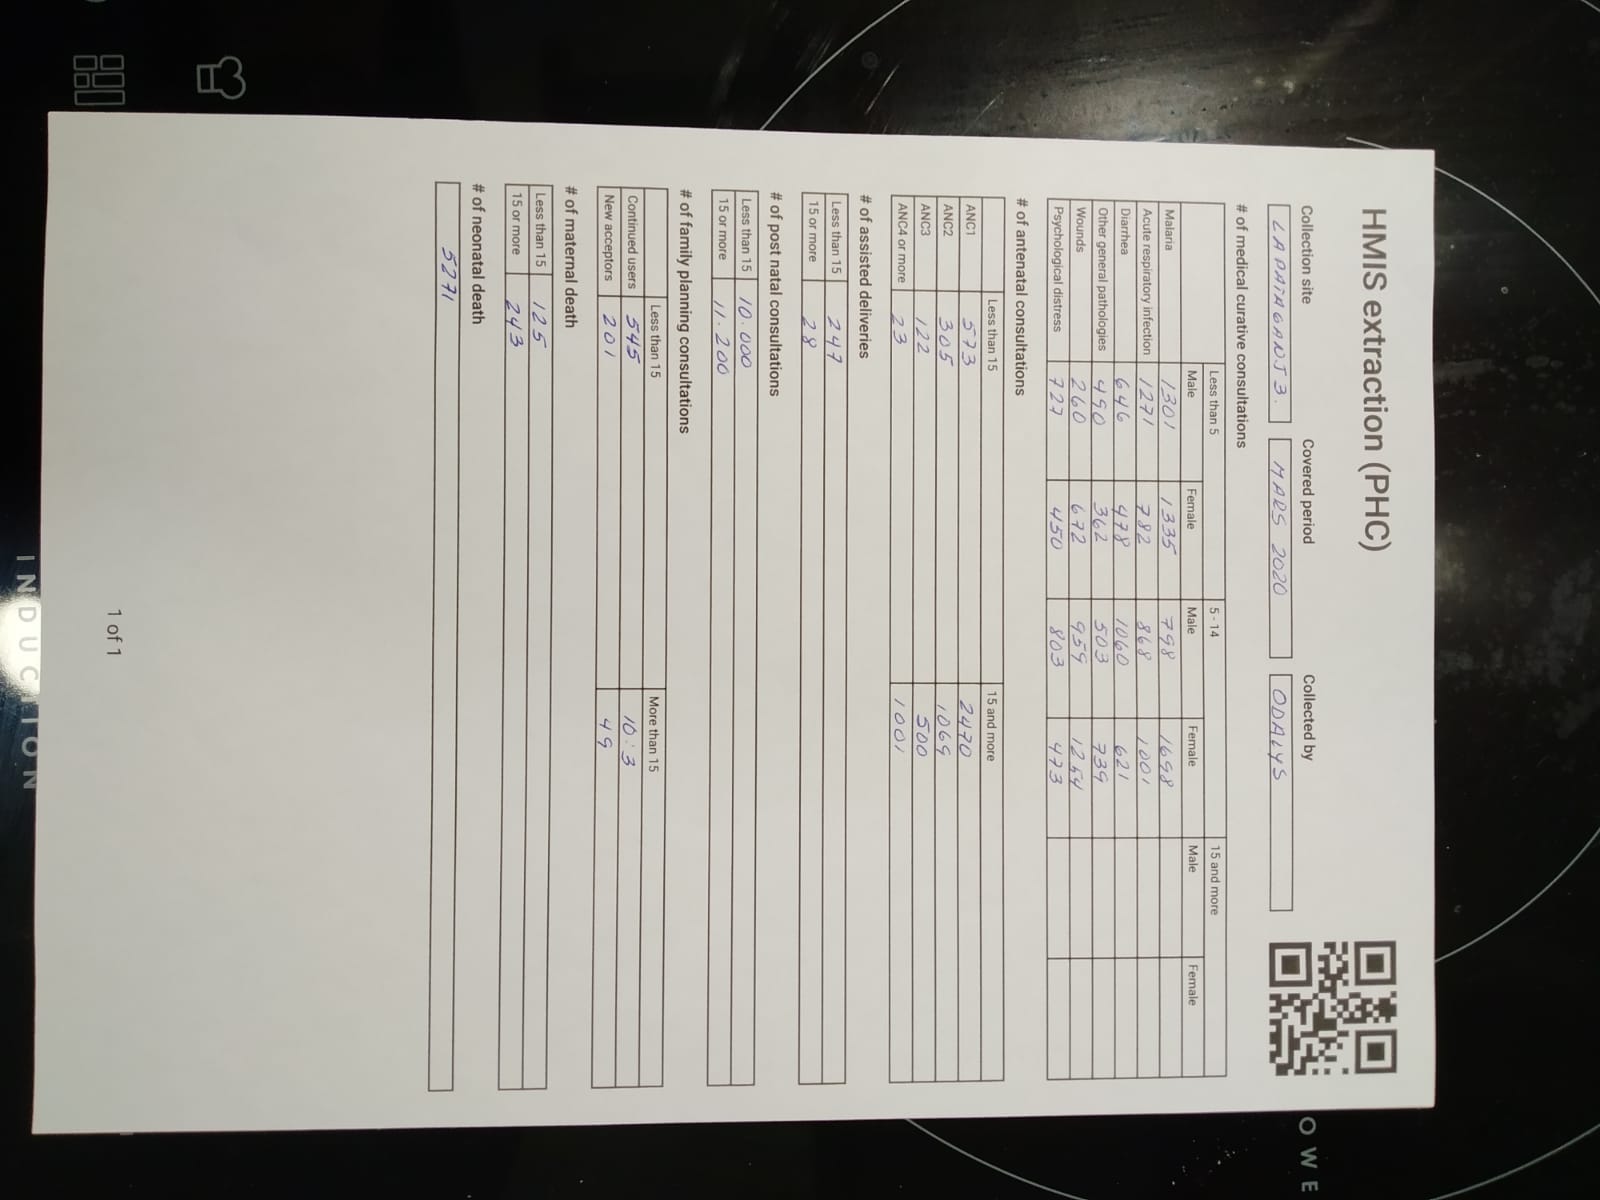 HMIS extraction (PHC)
Collection site Covered period Collected by
MARS 2020 ODALYS
# of medical curative consultations
Less than 5 5 - 14 15 and more
Male Female Male Female Male Female
Malaria 1301 1335 798 1698
Acute respiratory infection 1271 782 868 1001
Diarrhea 646 478 1060 621
Other general pathologies 490 362 503 739
Wounds 260 672 959 1254
Psychological distress 727 450 803 473
# of antenatal consultations
Less than 15 15 and more
ANC1 573 2470
ANC2 305 1069
ANC3 122 500
ANC4 or more 23 1001
# of assisted deliveries
Less than 15 247
15 or more 28
# of post natal consultations
Less than 15 10.000
15 or more 11.200
# of family planning consultations
Less than 15 More than 15
Continued users 545 10:3
New acceptors 201 49
# of maternal death
Less than 15 125
15 or more 243
# of neonatal death
5271
1 of 1
INDUCTION
OWE